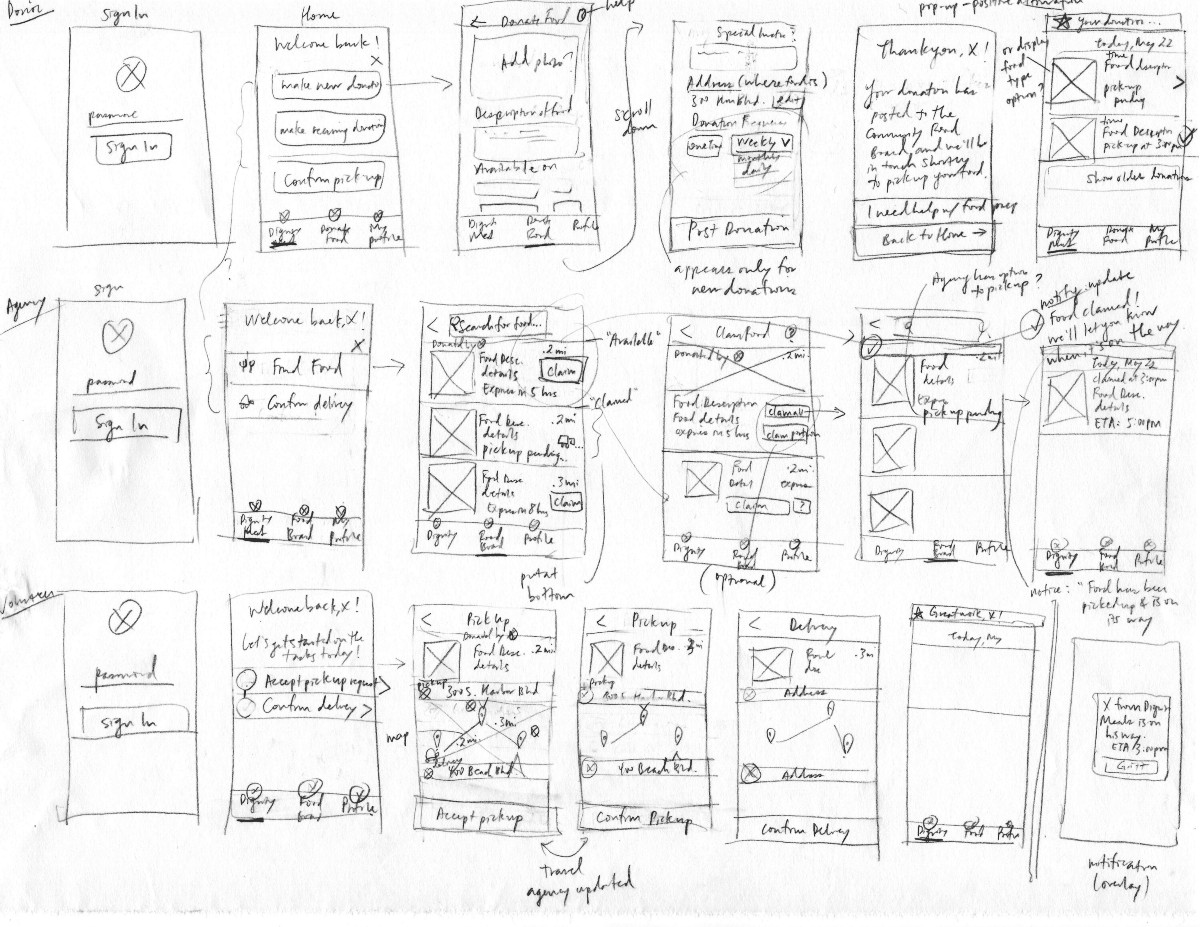 Donor
Sign In
password
Sign In
Home
Welcome back!
X
make new donation
make recurring donation
Confirm pick up
Dignity
Donate
Food
My
Profile
← Donate Food ?
help
Add photo?
Description of food
Available on
Dignity
Profile
scroll
down
Address (where food is)
edit
weekly
monthly
daily
Post Donation
appears only for
new donations
pop-up - positive
Thank you, X!
Your donation has
posted to the
Community Food
Board, and we'll be
in touch shortly
to pick up your food.
I need help w/ food prep
Back to Home →
or display
food
type
option?
Your donation...
today, May 22
time
pick-up
pending
time
Food
pick up at 3:00pm
show older donations
Dignity
My
Profile
Agency
sign
password
Sign In
Welcome back, X!
X
Find Food
Confirm delivery
Dignity
Food
Board
My
Profile
< Search for food...
Donated by
Food Desc.
details
Expires in 5 hrs
.2 mi
Claim
Food Desc.
details
pickup pending...
.2 mi
Food Desc
details
Expires in 8 hrs
.3 mi
Claim
Dignity
Food
Board
Profile
"Available"
"Claimed"
put at
bottom
< Claim Food ?
Donated by
.2 mi.
Food Description
Food details
expires in 5 hrs
claim all
claim portion
Food
Detail
.2 mi.
expires
claim
?
Dignity
Profile
(optional)
Agency has option
to pick up?
<
Food
details
.2 mi
pick up pending
Dignity
Food
Board
Profile
notify update
Food claimed!
we'll let you know
when it's on the way.
Today, May 22
claimed at 3:00pm
Food Desc.
details
ETA: 5:00pm
Dignity
Food
Board
Profile
notice: "Food has been
picked up & is on
its way
Volunteer
password
sign In
Welcome back, X!
Let's get started on the
tasks today!
Accept pickup request >
Confirm delivery >
Dignity
Food
Board
Profile
map
< Pick up
Donated by
Food Desc.
details
.2 mi
pickup
300 S. Harbor Blvd
.3mi
.2 mi
delivery
400 Beach Blvd
Accept pickup
< Pick up
Food Desc.
details
300 S. Harbor Blvd.
400 Beach Blvd.
Confirm Pickup
travel
agency updated
< Delivery
Food
desc
.3m
Address
Address
Confirm Delivery
Great work, X!
Today, May
Dignity
Food
Profile
X from Dignity
Meals is on
his way.
ETA 3:00pm
Got it
notification
(overlay)